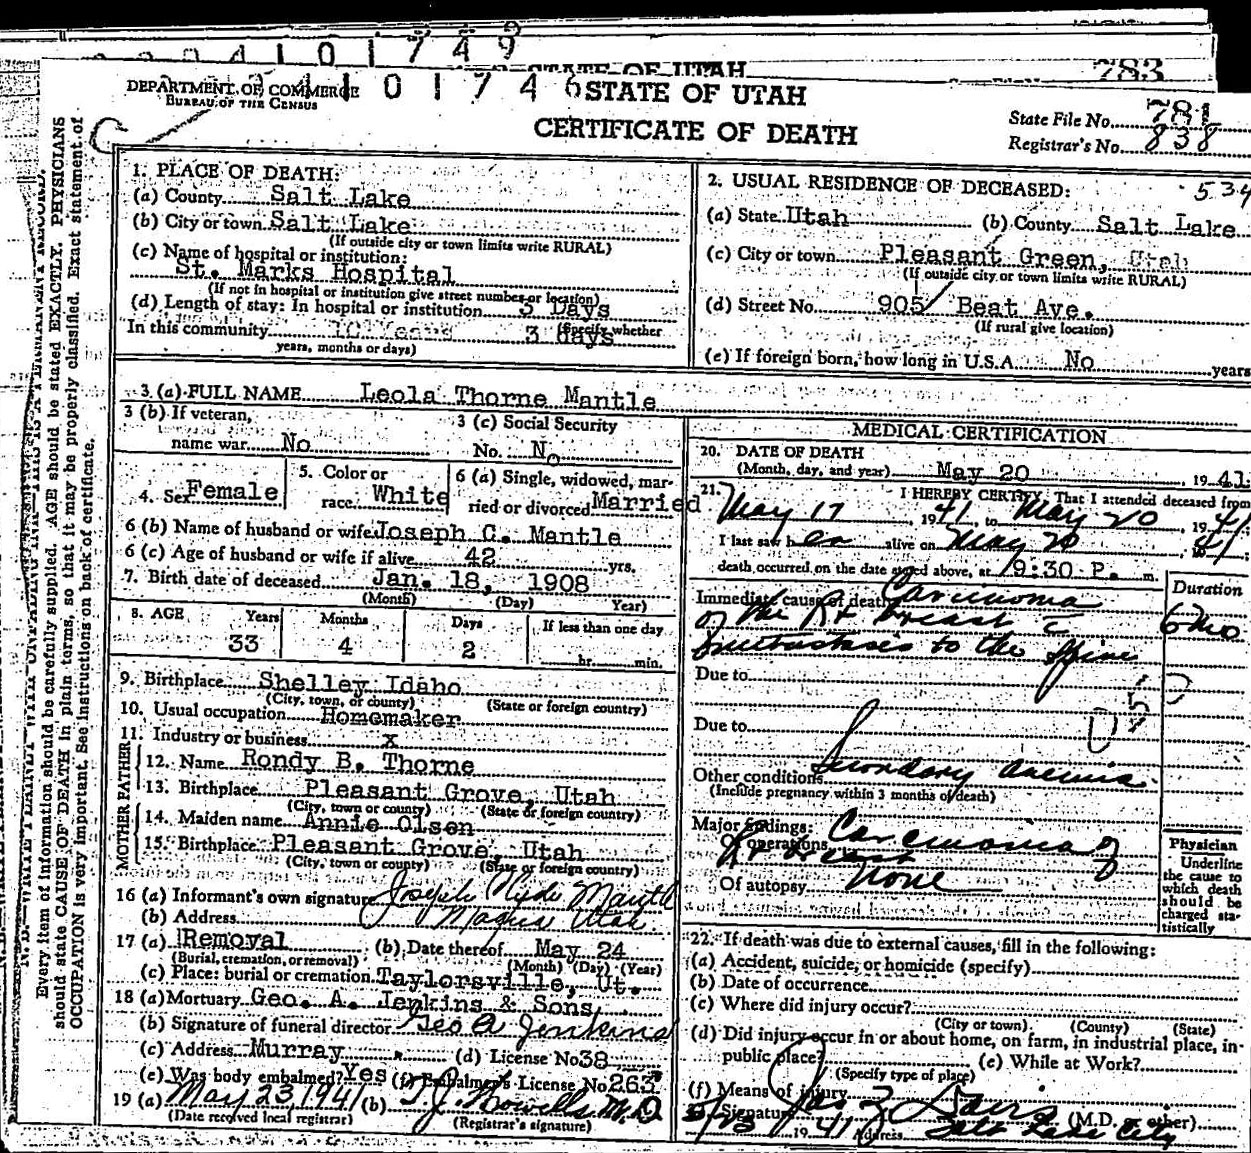 4 1 0 1 7 4 9
STATE OF UTAH
783
DEPARTMENT OF COMMERCE
BUREAU OF THE CENSUS
4 1 0 1 7 4 6
STATE OF UTAH
CERTIFICATE OF DEATH
State File No. 781
Registrar's No. 838
534
Every item of information should be carefully supplied. AGE should be stated EXACTLY. PHYSICIANS
should state CAUSE OF DEATH in plain terms, so that it may be properly classified. Exact statement of
OCCUPATION is very important. See instructions on back of certificate.
1. PLACE OF DEATH:
(a) County Salt Lake
(b) City or town Salt Lake
(If outside city or town limits write RURAL)
(c) Name of hospital or institution:
St. Marks Hospital
(If not in hospital or institution give street number or location)
(d) Length of stay: In hospital or institution 3 Days
(Specify whether
In this community 10 Years 3 days
years, months or days)
2. USUAL RESIDENCE OF DECEASED:
(a) State Utah (b) County Salt Lake
(c) City or town Pleasant Green, Utah
(If outside city or town limits write RURAL)
(d) Street No. 905 Beat Ave.
(If rural give location)
(e) If foreign born, how long in U.S.A. No years
3 (a) FULL NAME Leola Thorne Mantle
3 (b) If veteran,
name war No
3 (c) Social Security
No. No
4. Sex Female
5. Color or
race White
6 (a) Single, widowed, mar-
ried or divorced Married
6 (b) Name of husband or wife Joseph C. Mantle
6 (c) Age of husband or wife if alive 42 yrs.
7. Birth date of deceased Jan. 18, 1908
(Month) (Day) Year)
8. AGE Years Months Days If less than one day
33 4 2 hr. min.
9. Birthplace Shelley Idaho
(City, town, or county) (State or foreign country)
10. Usual occupation Homemaker
11. Industry or business x
FATHER
12. Name Rondy B. Thorne
13. Birthplace Pleasant Grove, Utah
(City, town or county) (State or foreign country)
MOTHER
14. Maiden name Annie Olsen
15. Birthplace Pleasant Grove, Utah
(City, town or county) (State or foreign country)
16 (a) Informant's own signature Joseph Clyde Mantle
(b) Address Magna Utah
17 (a) Removal (b) Date thereof May 24
(Burial, cremation, or removal) (Month) (Day) (Year)
(c) Place: burial or cremation Taylorsville, Ut.
18 (a) Mortuary Geo. A. Jenkins & Sons,
(b) Signature of funeral director Geo A Jenkins
(c) Address Murray (d) License No 38
(e) Was body embalmed? Yes (f) Embalmer's License No. 263
19 (a) May 23 1941 (b) T.J. Howells M.D.
(Date received local registrar) (Registrar's signature)
MEDICAL CERTIFICATION
20. DATE OF DEATH
(Month, day, and year) May 20, 1941
21. I HEREBY CERTIFY, That I attended deceased from
May 17, 1941, to May 20 1941
I last saw her alive on May 20 1941
death occurred on the date stated above, at 9:30 P. m.
Duration
Immediate cause of death Carcinoma
of the Rt breast c 6 mo
metastases to the spine
Due to
Due to
Other conditions Secondary anemia
(Include pregnancy within 3 months of death)
Major findings:
Of operations Carcinoma of
Rt breast
Of autopsy none
Physician
Underline
the cause to
which death
should be
charged sta-
tistically
22. If death was due to external causes, fill in the following:
(a) Accident, suicide, or homicide (specify)
(b) Date of occurrence
(c) Where did injury occur?
(City or town) (County) (State)
(d) Did injury occur in or about home, on farm, in industrial place, in-
public place? (e) While at Work?
(Specify type of place)
(f) Means of injury
Signature Jas Z Davis (M.D. or other)
5/23 1941 Address Salt Lake City